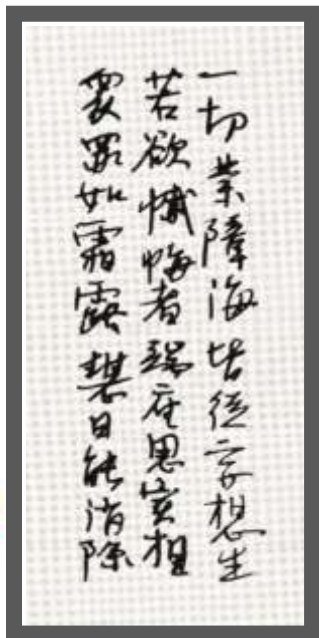 一切業障海皆從妄想生
若欲懺悔者端座思實相
衆罪如霜露慧日能消除